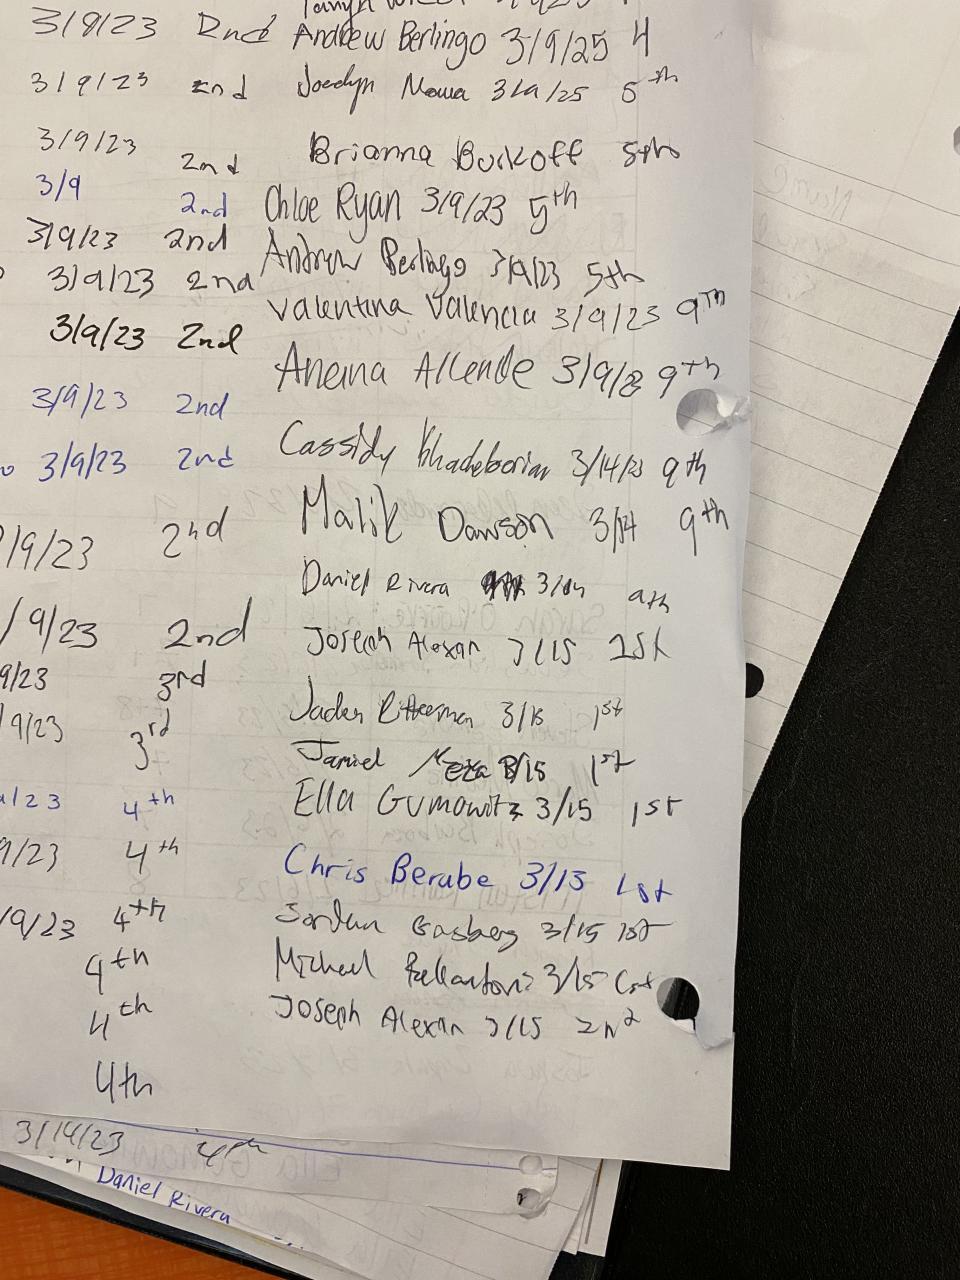 3/8/23 2nd Andrew Berlingo 3/9/25 4
3/9/23 2nd Jocelyn 3/9/25 5th
3/9/23 2nd Brianna Burkoff 5th
3/9 2nd Chloe Ryan 3/9/23 5th
3/9/23 2nd Andrew Berlingo 3/9/23 5th
3/9/23 2nd Valentina Valencia 3/9/23 9th
3/9/23 2nd Allende 3/9/23 9th
3/9/23 2nd
3/9/23 2nd Cassidy 3/14/23 9th
/9/23 2nd Malik Dawson 3/14 9th
Daniel Rivera 9th
/9/23 2nd Joseph Alexan 3/15 1st
9/23 3rd
/9/23 3rd Jaden Ritterman 3/15 1st
Jamiel Meza 3/15 1st
/23 4th Ella Gumowitz 3/15 1st
9/23 4th Chris Berube 3/15 1st
/9/23 4th Jordan Gasberg 3/15 1st
4th Michael 3/15 1st
4th Joseph Alexan 3/15 2nd
4th
3/14/23 4th
Daniel Rivera